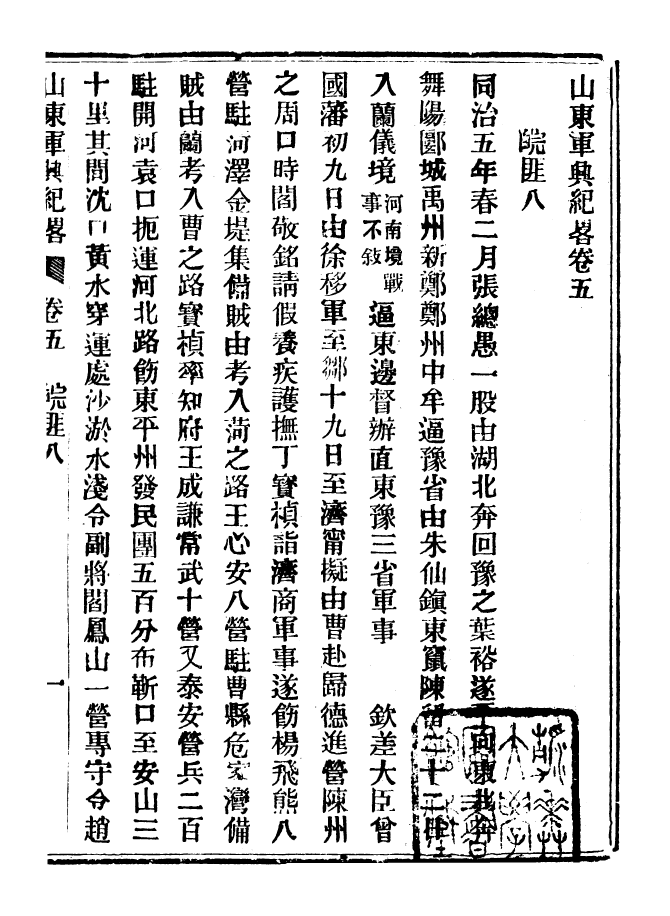 山東軍興紀畧卷五
皖匪八
同治五年春二月張總愚一股由湖北奔回豫之葉裕遂
舞陽郾城禹州新鄭鄭州中牟逼豫省由朱仙鎮東竄陳
入蘭儀境河南境戰事不敘逼東邊督辦直東豫三省軍事 欽差大臣曾
國藩初九日由徐移軍至鄒十九日至濟甯擬由曹赴歸德進營陳州
之周口時閻敬銘請假養疾護撫丁寶楨詣濟商軍事遂飭楊飛熊八
營駐河澤金堤集備賊由考入菏之路王心安八營駐曹縣危家灣備
賊由蘭考入曹之路寶楨率知府王成謙常武十營又泰安營兵二百
駐開河袁口扼運河北路飭東平州發民團五百分布靳口至安山三
十里其間沈口黃水穿運處沙淤水淺令副將閻鳳山一營專守令趙
山東軍興紀畧 卷五 皖匪八 一